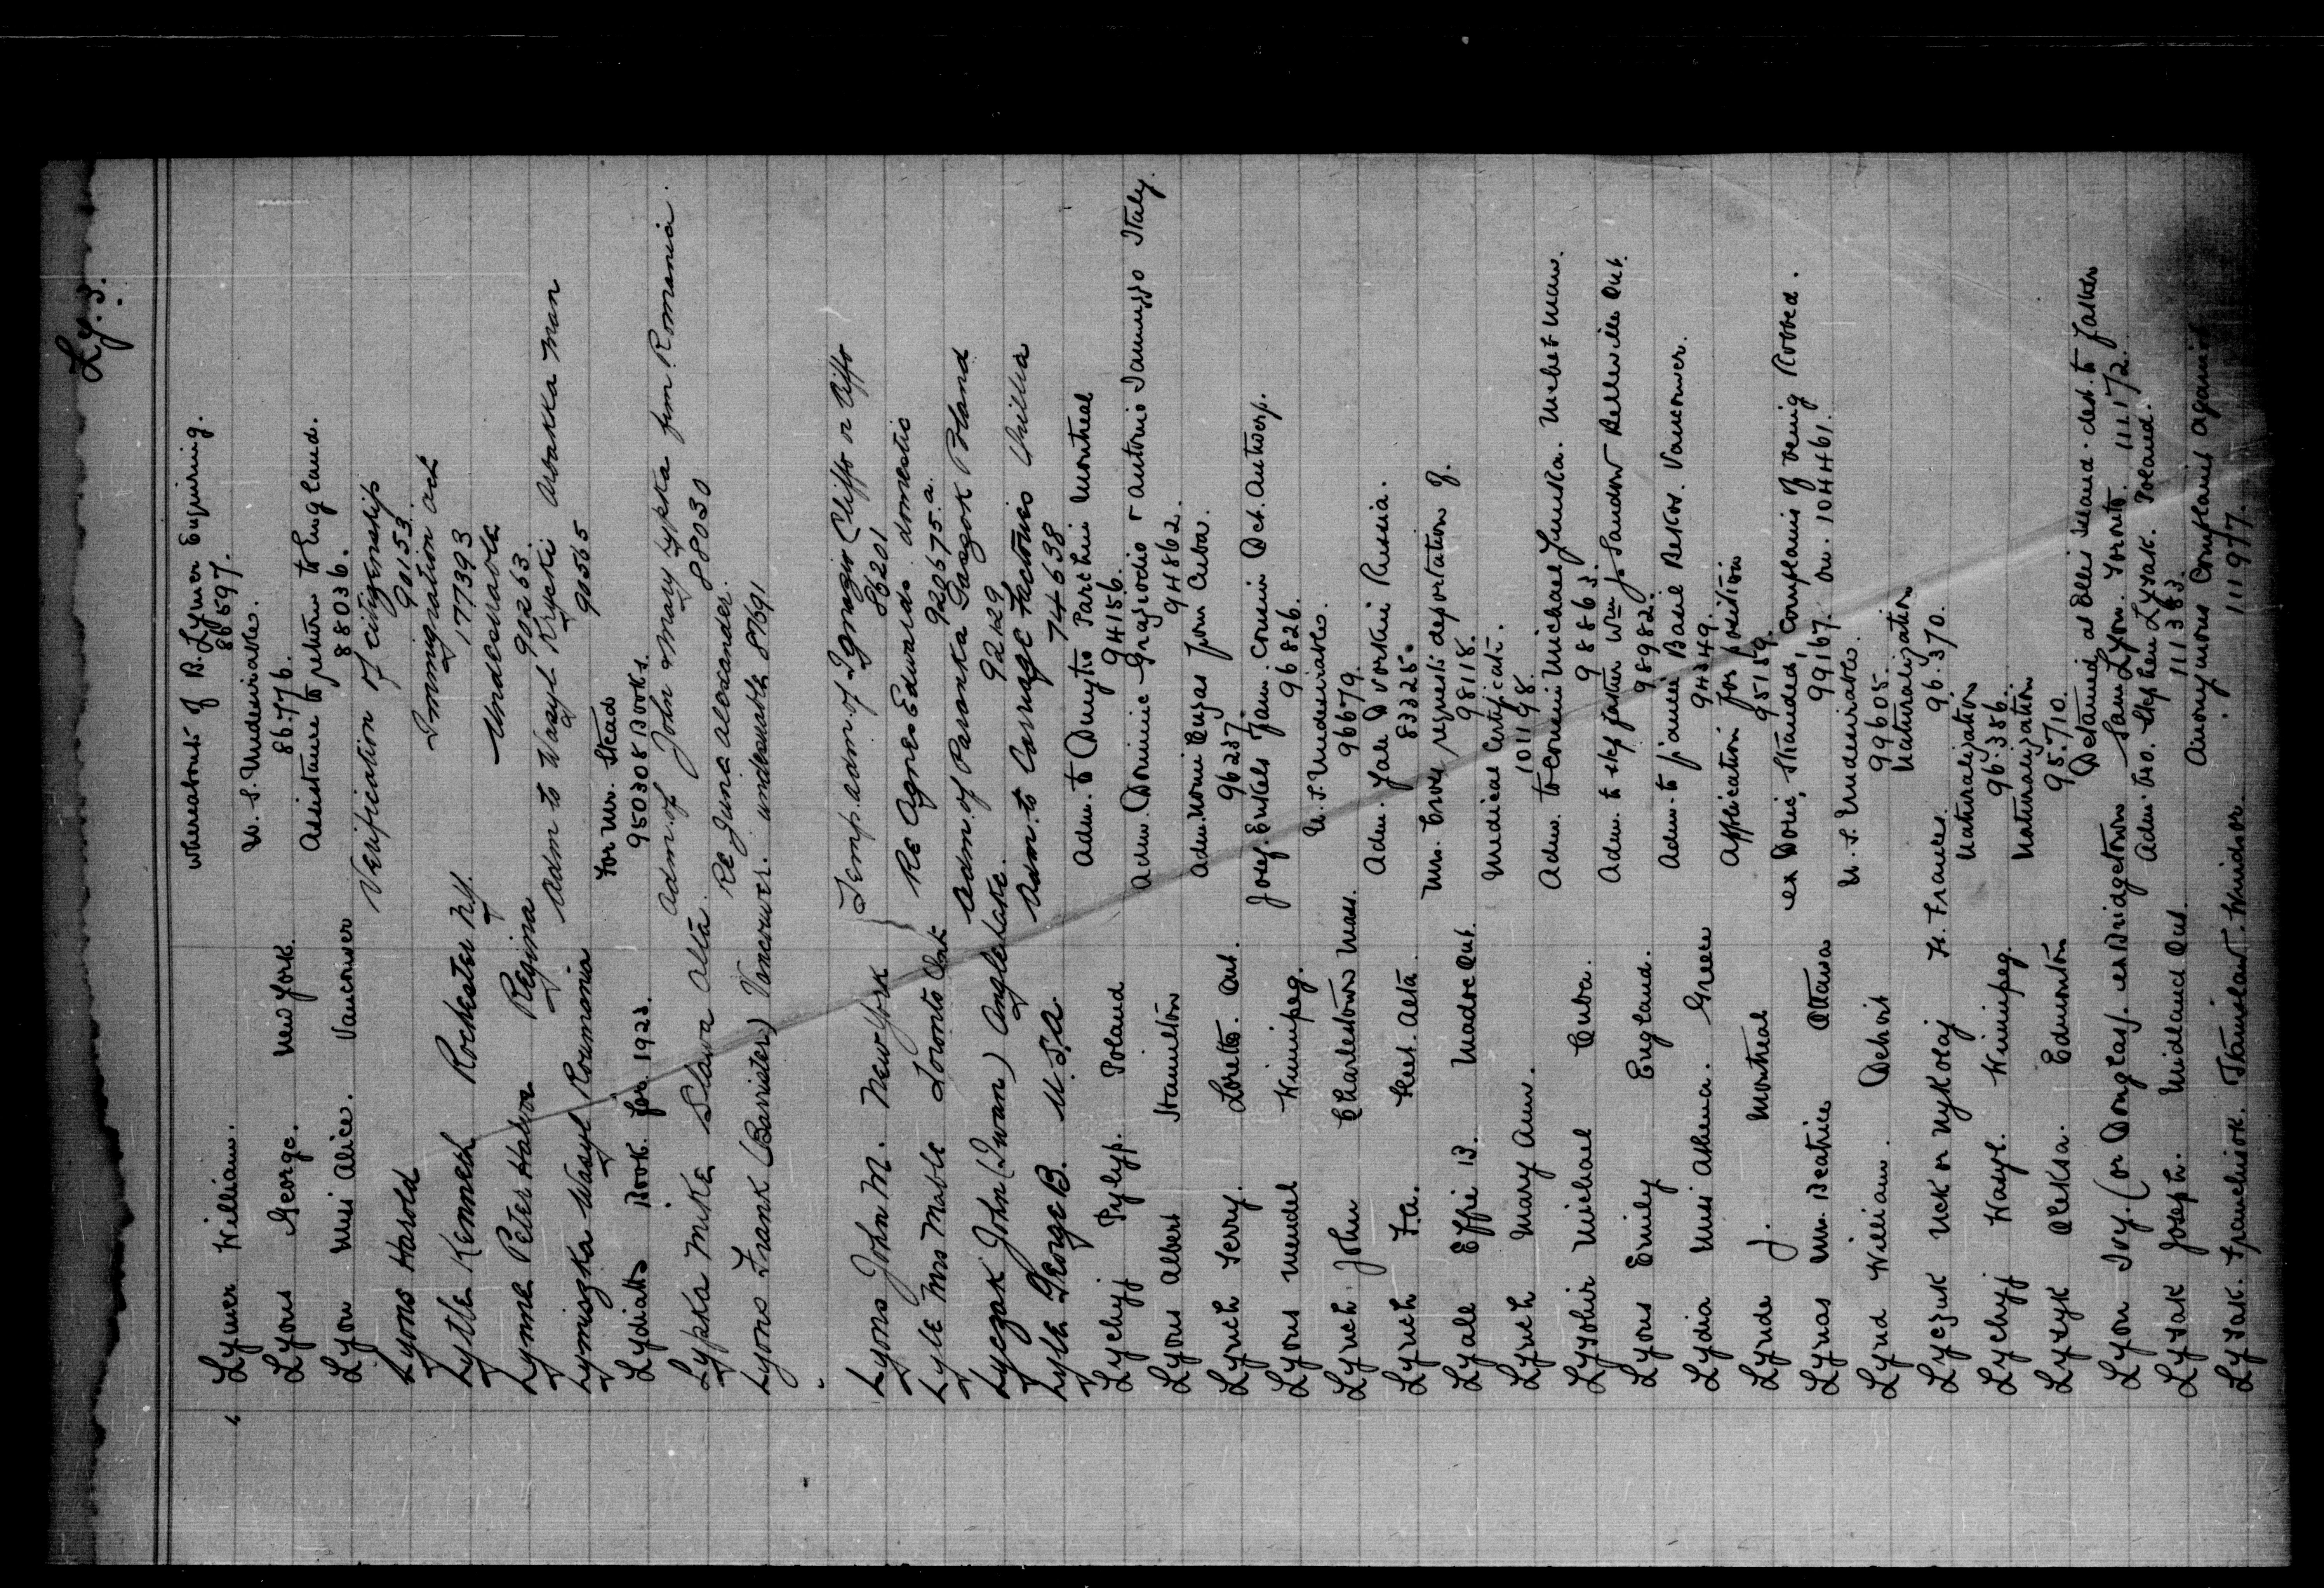 Ly.s.
Lymer William. Whereabouts of B. Lymer Enquiring.
86597.
Lyons George. New York. U.S. Undesirable.
86776.
Lyon Miss Alice. Vancouver Assistance to return to England.
88036.
Lyons Harold Verification of citizenship
90153.
Lytle Kenneth Rochester N.Y. Immigration act
177393
Lynne Peter Regina Undesirable
90263.
Lymiszka Wasyl Roumania Adm to Wasyl Krycki Arbakka Man
90565
Lydiatts Book for 1923. For Mr. Stead
950308 Books.
Lypka Mike Slawa Alta. Adm. of John & Mary Lypka from Romania.
88030
Lyons Frank (Barrister) Vancouver. Re June Alexander.
undesirable 87691
Lyons John M. New York } Temp. adm. of Ignazio Cliffo or Uffo
86201
Lyle Mrs Mable Toronto Ont. Re Agnes Edwards domestic
920675.a.
Lyczak John (Iwan) Angle Lake. Adm. of Paranka Gaszok Poland
92429
Lyle George B. U.S.A. Adm. to Carriage Factories Orillia
74638
Lychyj Pylyp. Poland Adm. to Dmytro Parchin Montreal
94156.
Lyons Albert Hamilton Adm. Dominic Graziodio & Antonio Iannizzo Italy.
94862.
Lynch Terry. Loretto. Ont. Adm. from Cuba.
96237.
Lyons Mendel Winnipeg. Josef. Enkels Fam. Cousin Det. Antwerp.
96826.
Lynch John Charlestown Mass. U.S. Undesirable.
96679.
Lynch F.A. Alta. Adm. Yale Dvorkin Russia.
83325.
Lyall Effie B. Madoc Ont. Mrs. requests deportation of.
98118.
Lynch Mary Ann. Medical Certificate.
101198.
Michael Cuba. Adm. to cousin Michael
98863.
Lyons Emily England. Adm. to step father Wm J. Sandor Belleville Ont.
98982.
Lydia Miss Athena. Greece Adm. to fiancé Basil Vancouver.
94349.
Lynde J. Montreal Application for position
95159.
Lynas Mrs. Beatrice Ottawa ex Doric, Stranded, Complains of being Robbed.
99167. on. 104461.
Lynd William. Detroit U.S. Undesirable.
99605.
Lyczuk Nick or Mykolaj Ft. Frances. Naturalization
96370.
Lychyj Wasyl. Winnipeg. Naturalization
96386.
Oleksa. Edmonton Naturalization
95710.
Lyon Ivy. (or Douglas). ex Bridgetown Detained at Ellis Island. dest. to father
Sam Lyon. Toronto. 111172.
Lysak Joseph. Midland Ont. Adm. bro. Stephen Lysak. Poland.
111383.
Lysak. Franciszek. Stanislaw. Windsor. Anonymous Complaint against
111977.